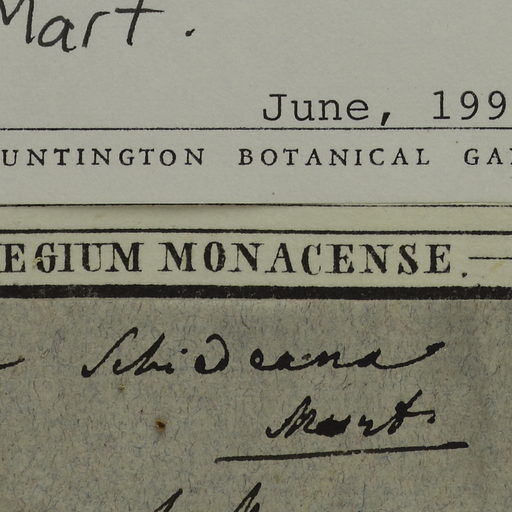 Mart.
June, 199
UNTINGTON BOTANICAL GA
EGIUM MONACENSE.
Schideana
Mart.